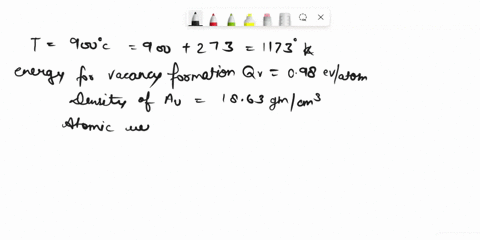 T = 900°C = 900 + 273 = 1173° K
energy for vacancy formation Qv = 0.98 ev/atom
Density of Au = 18.63 gm/cm³
Atomic we